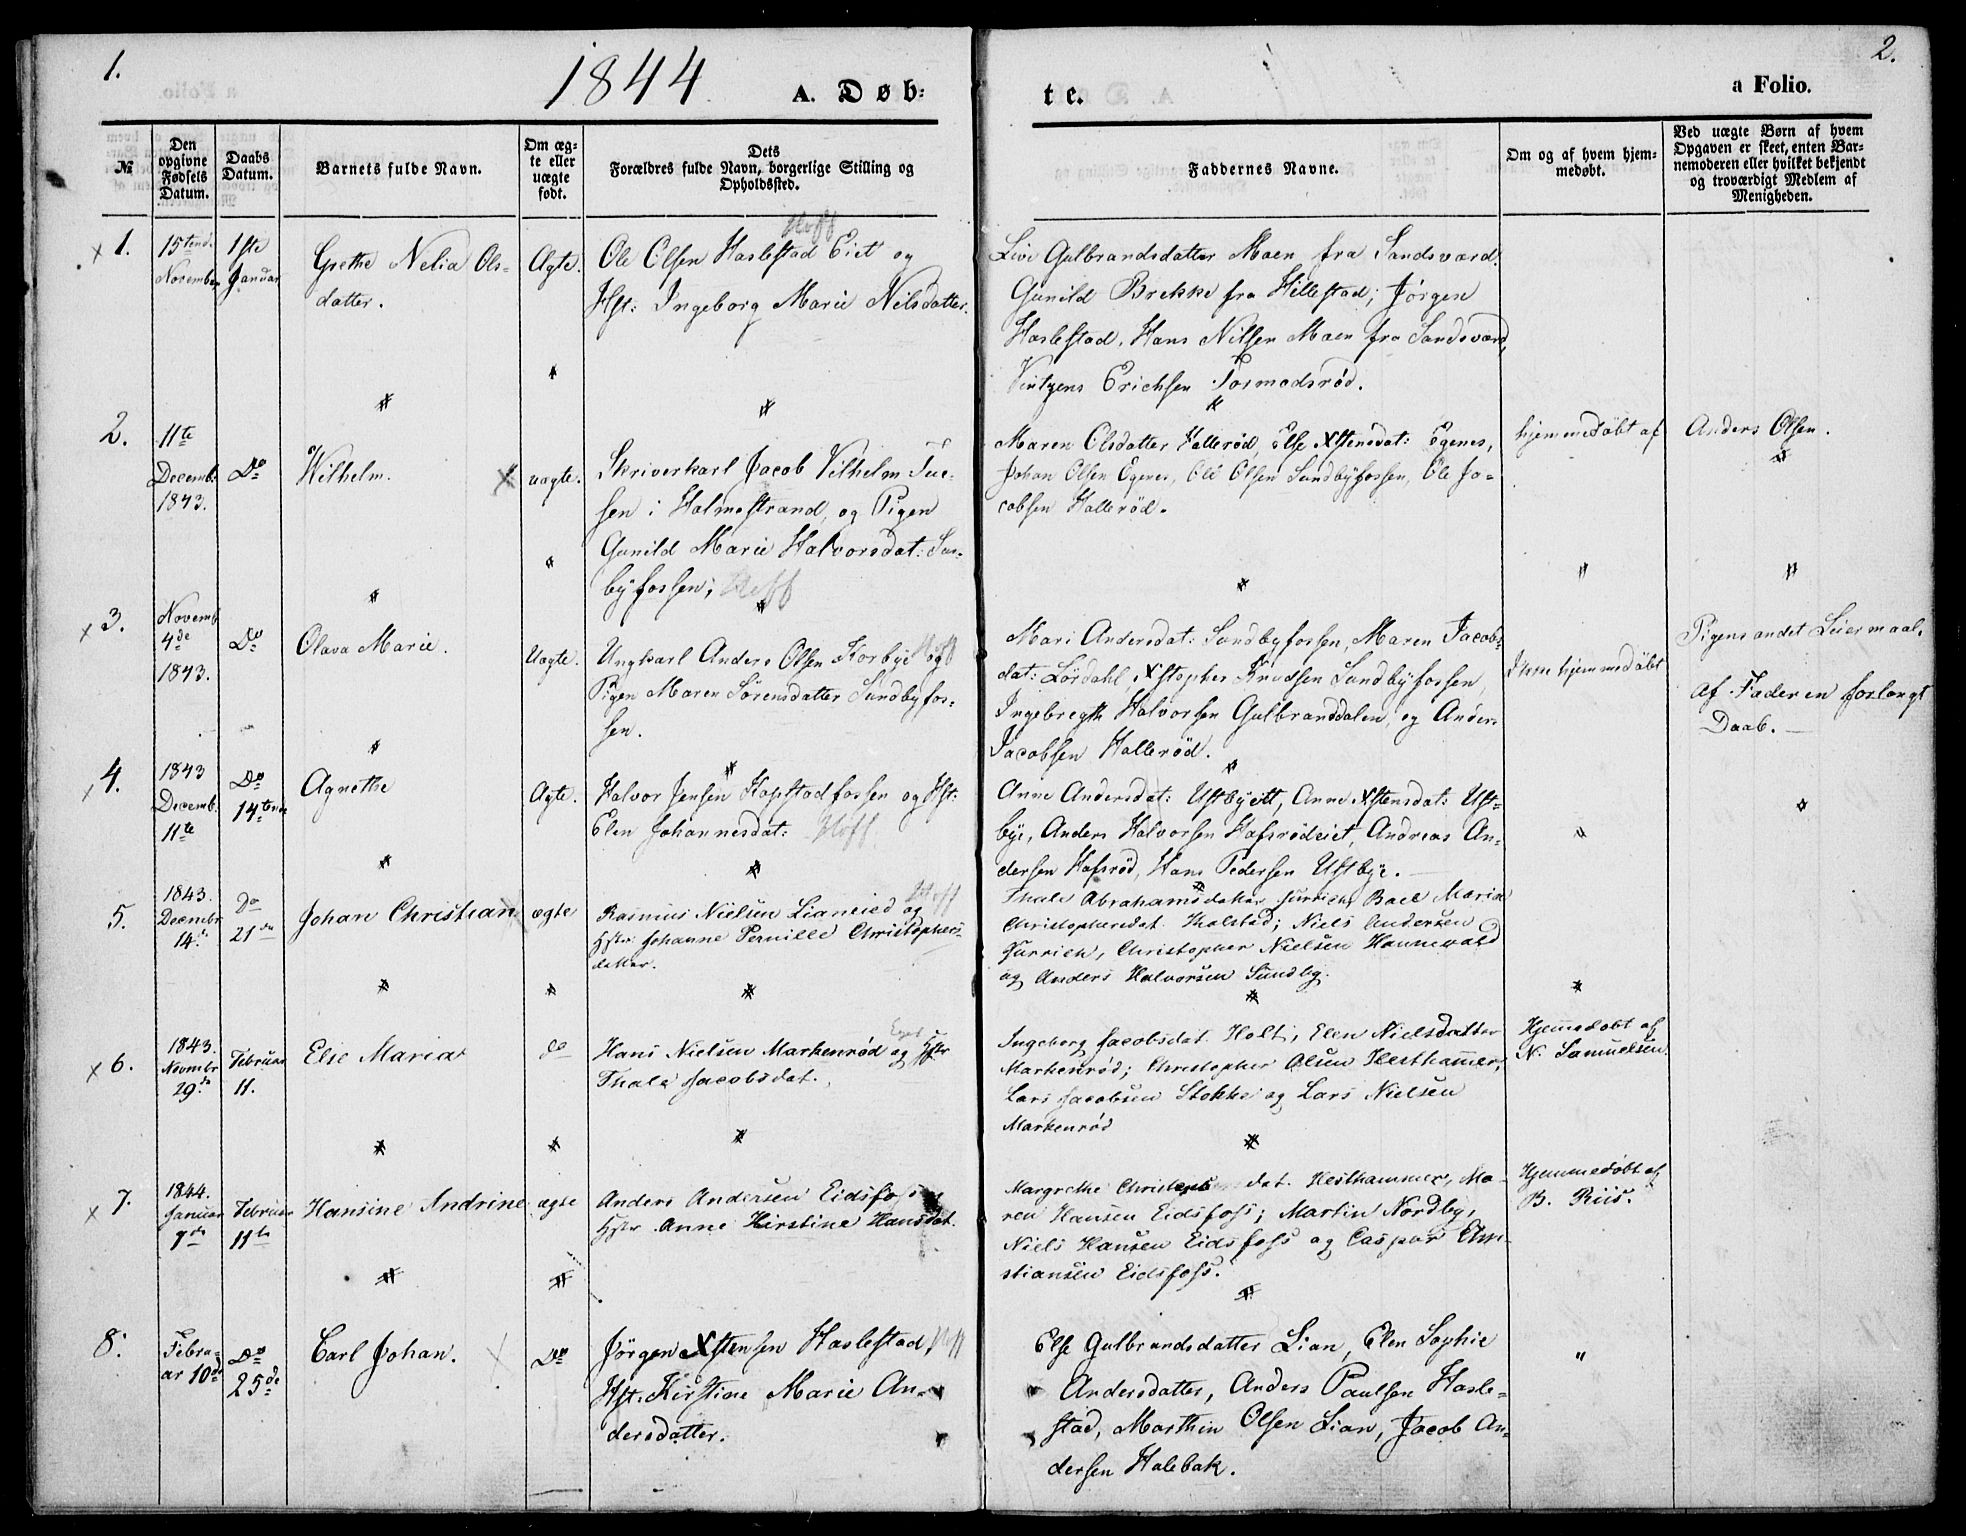 1.
1844
A. Døb:
te.
a Folio.
2.
№
Den opgivne Fødsels Datum.
Daabs Datum.
Barnets fulde Navn.
Om ægte eller uægte født.
Dets Forældres fulde Navn, borgerlige Stilling og Opholdssted.
Faddernes Navne.
Om og af hvem hjemmedøbt.
Ved uægte Børn af hvem Opgaven er skeet, enten Barnemoderen eller hvilket bekjendt og troværdigt Medlem af Menigheden.
x 1.
15tende
November
1ste
Januar
Grethe Nelia Ols-
datter.
Ægte.
Hoff
Ole Olsen Haslestad Eiet og
Hst: Ingeborg Marie Nilsdatter.
Live Gulbrandsdatter Moen fra Sandsværd.
Gunild Brekke fra Hillestad; Jørgen
Haslestad, Hans Nilsen Moen fra Sandsværd,
Erichsen Tormodsrød.
2.
11te
Decemb:
1843.
Do
Wilhelm.
uægte.
Skriverkarl Jacob Vilhelm Tue-
sen i Holmestrand, og Pigen
Gunild Marie Halvorsdat: Sun-
byfossen; Hoff
Maren Olsdatter Hallerød, Else Xstensdat: Egenes,
Johan Olsen Egenes, Ole Olsen Sundbyfossen, Ole Ja-
cobsen Hallerød.
hjemmedøbt af
Anders Olsen.
x 3.
Novemb
4de
1843.
Do
Olava Marie.
Uægte.
Ungkarl Anders Olsen Korbye Hoff og
Pigen Maren Sørensdatter Sundbyfos-
sen.
Mari Andersdat: Sundbyfossen, Maren Jacobs-
dat: Lørdahl, Xstopher Knudsen Sundbyfossen,
Ingebregth Halvorsen Gulbranddalen, og Anders
Jacobsen Hallerød.
Ikke hjemmedøbt
Pigens andet Leiermaal.
Af Faderen forlangt
Daab. —
4.
1843
Decemb.
11te
Do
14tende
Agnethe
Ægte.
Halvor Jensen Kopstadfossen og Hst:
Elen Johannesdat: Hoff
Anne Andersdat: Ustbyeit, Anne Xstensdat: Ust-
bye, Anders Halvorsen Hafsrødeiet, Andreas An-
dersen Hafsrød, Hans Pedersen Ustbye. —
5.
1843.
Decembr
14de
do
21de
Johan Christian
ægte
Rasmus Nielsen Lianeied og Hoff
Hstr: Johanne Pernille Christophers-
datter.
Thale Abrahamsdatter Jurrich, Bael Maria
Christophersdat. Tholstad; Niels Andersen
Jurrich, Christopher Nielsen Hannevold
og Anders Halvorsen Sundby.
x 6.
1843.
Novembr
29de
Februar
11.
Else Maria
do
Eget
Hans Nielsen Markenrød og Hstr
Thale Jacobsdat.
Ingeborg Jacobsdat. Holt; Elen Nielsdatter
Markenrød; Christopher Olsen Hesthammer;
Lars Jacobsen Stokke og Lars Nielsen
Markenrød
Hjemmedøbt af
N. Samuelsen.
x 7.
1844.
Januar
7de
Februar
11te
Hansine Andrine
ægte
Anders Andersen Eidsfoss
Hstr Anne Kirstine Hansdat.
Margrethe Christophersdat. Hesthammer, Ma-
ren Hansen Eidsfoss; Martin Nordby,
Niels Hansen Eidsfoss og Caspar Chri-
stiansen Eidsfoss.
Hjemmedøbt af
B. Riis.
8.
Febru-
ar 10de
Do
25de
Carl Johan.
Do
Jörgen Xstensen Haslestad Hoff
Hst: Kirstine Marie An-
dersdatter.
Else Gulbrandsdatter Lian, Elen Sophie
Andersdatter, Anders Paulsen Hasle-
stad, Marthin Olsen Lian, Jacob An-
dersen Halebak.